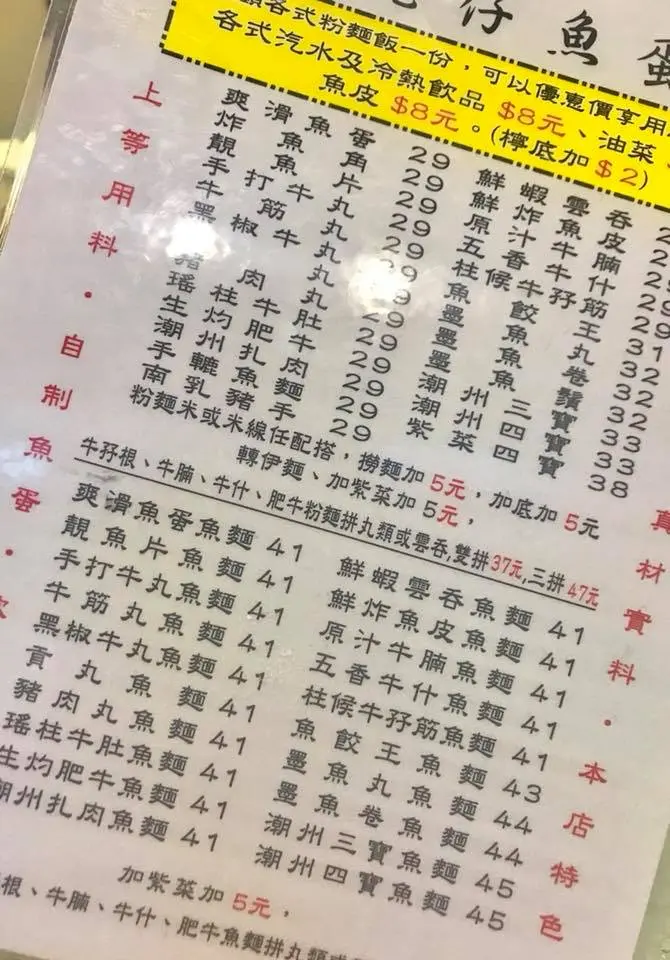 仔魚蛋
各式粉麵飯一份，可以優惠價享用
各式汽水及冷熱飲品 $8元、油菜、
魚皮 $8元。(檸底加$2)
上等用料・自制魚蛋・
爽滑魚蛋 29
炸魚角 29
靚魚片 29
手打牛丸 29
牛筋丸 29
黑椒牛丸
丸
豬肉丸 29
瑤柱牛肚 29
生灼肥牛 29
潮州扎肉 29
手轆魚麵 29
南乳豬手 29
鮮蝦雲吞
鮮炸魚皮
原汁牛腩
五香牛什 29
柱候牛孖筋 31
魚餃王 32
墨魚丸 32
墨魚卷 32
墨魚鬚 32
潮州三寶 33
潮州四寶 33
紫菜四寶 38
粉麵米或米線任配搭，撈麵加5元，加底加5元
轉伊麵、加紫菜加5元，
牛孖根、牛腩、牛什、肥牛粉麵拼丸類或雲吞,雙拼37元,三拼47元
爽滑魚蛋魚麵 41
靚魚片魚麵 41
手打牛丸魚麵 41
牛筋丸魚麵 41
黑椒牛丸魚麵 41
貢丸魚麵 41
豬肉丸魚麵 41
瑤柱牛肚魚麵 41
生灼肥牛魚麵 41
潮州扎肉魚麵 41
鮮蝦雲吞魚麵 41
鮮炸魚皮魚麵 41
原汁牛腩魚麵 41
五香牛什魚麵 41
柱候牛孖筋魚麵 41
魚餃王魚麵 43
墨魚丸魚麵 44
墨魚卷魚麵 44
潮州三寶魚麵 45
潮州四寶魚麵 45
真材實料・本店特色
加紫菜加5元，
根、牛腩、牛什、肥牛魚麵拼丸類或